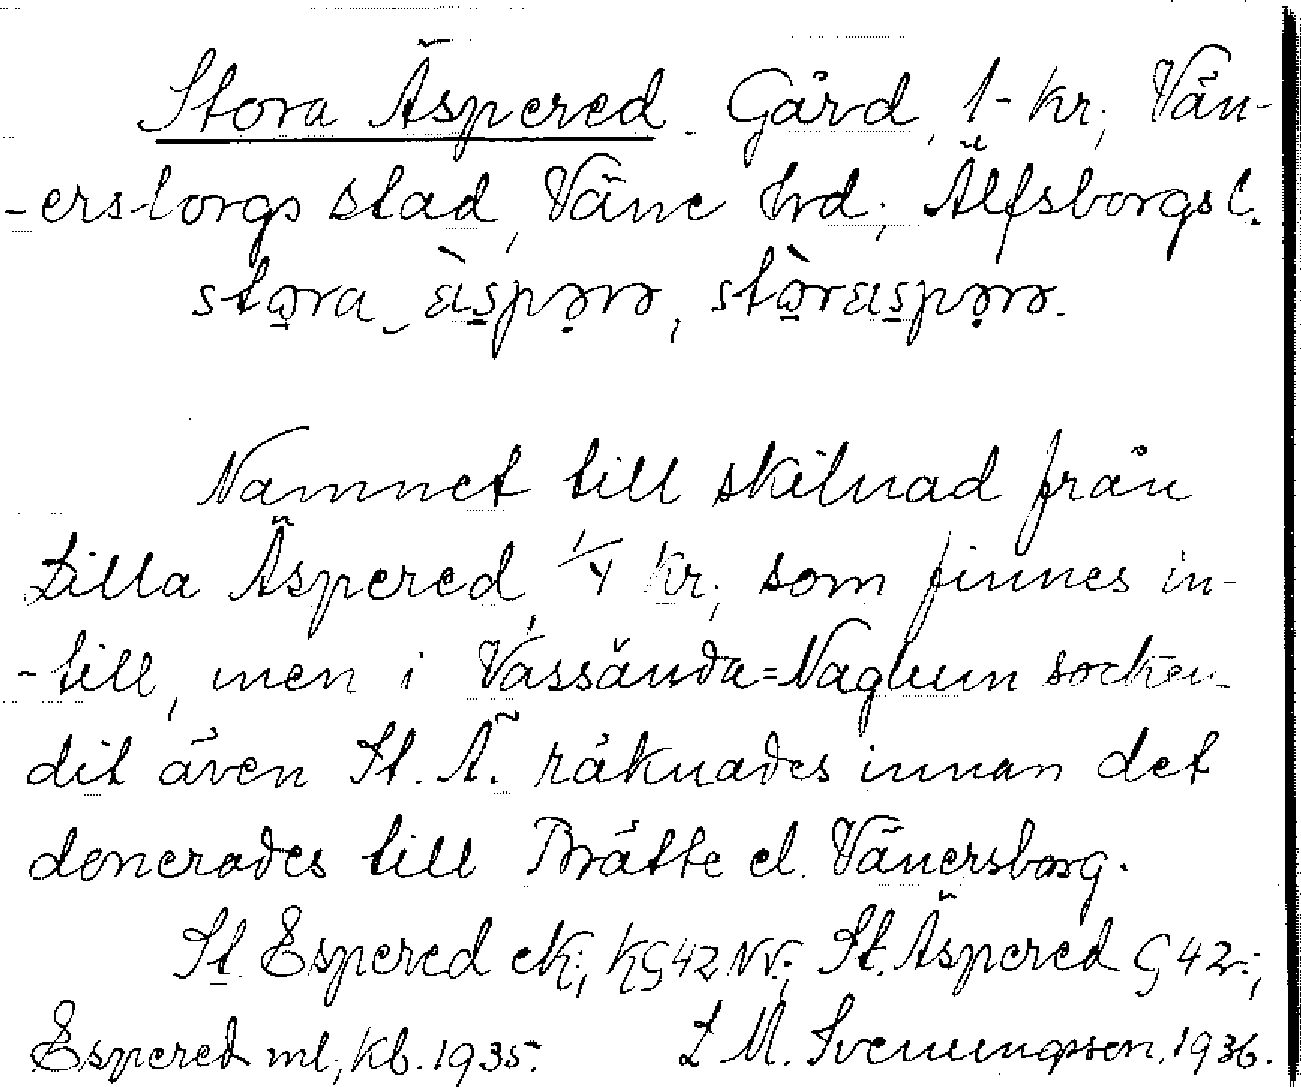 Stora Äspered. Gård, 1 kr; Vän-
-ersborgs stad, Väne hrd; Älfsborgs l.

Namnet till skilnad från
Lilla Äspered, 1/4 kr; som finnes in-
-till, men i Vassända=Naglum socken
dit även St. Ä. räknades innan det
donerades till Brätte el. Vänersborg.
St Espered ek; KG42NV; St. Äspered G42;
Espered ml; Kb. 1935. L M. Svenungsson. 1936.